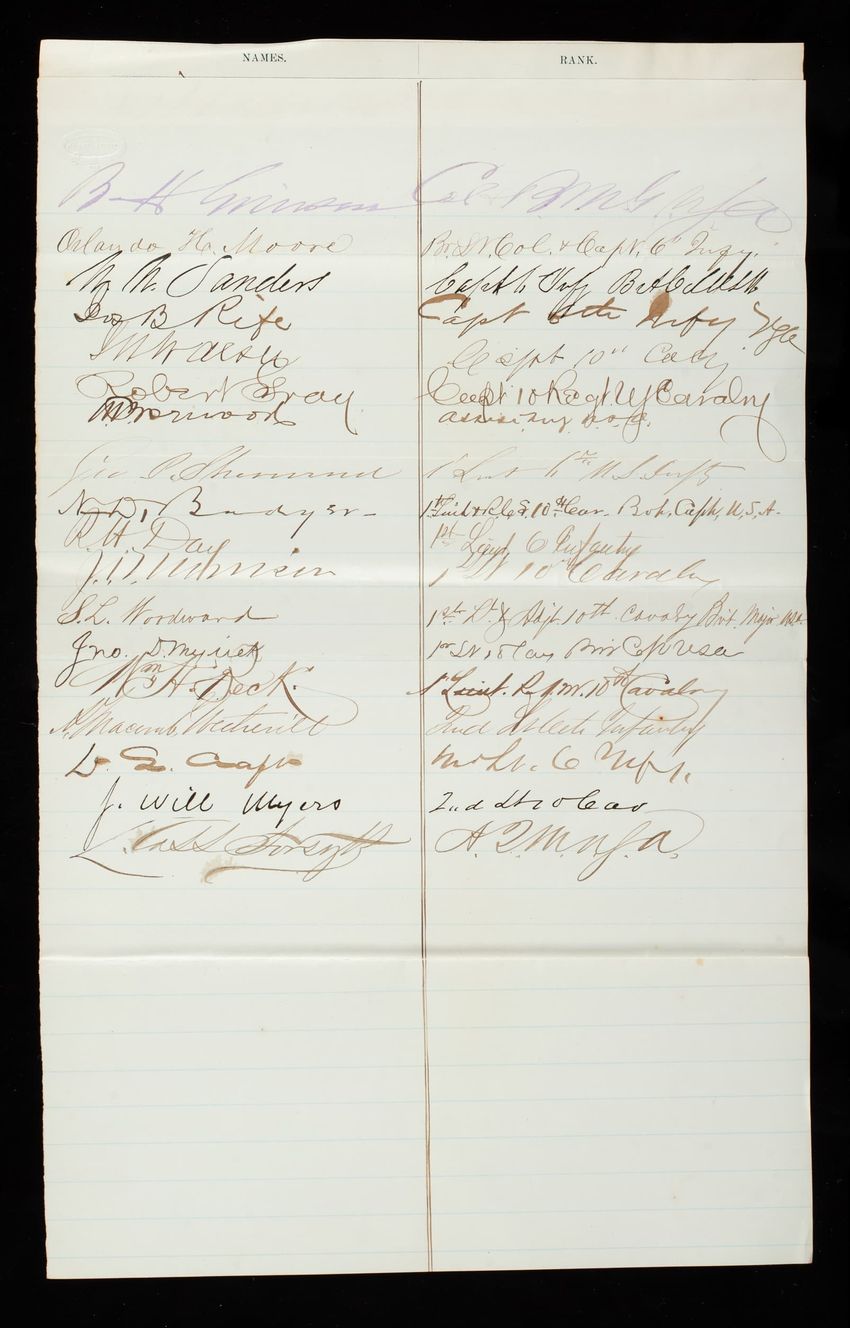 NAMES. RANK.
B H Grierson Col & B M G USA
Orlando H. Moore Br. Lt. Col. & Capt. 6" Infy.
W. W. Sanders Capt 6 Inf Bt Col USA
B Rife Capt 6th Infy USA
Capt 10" Cavy
Robert Gray Capt 10 Regt US Cavalry
Norwood
Geo P. Sherwood 1" Lieut 6th U.S. Infty
N. D. Badger 1st Lieut & R.Q.M. 10th Cav. Bvt. Capt, U.S.A.
R. H. Day 1st Lieut, 6 Infantry
1" Lt 10" Cavalry
S. L. Woodward 1st Lt & Adjt 10th Cavalry Bvt. Major USA
Jno. D. Myrick 1st Lt, 10 Cav Bvt Capt USA
Wm H. Beck. 1" Lieut. 10th Cavalry
A. Macomb Wetherill 2nd Lieut Sixth Infantry
D. L. Craft 2nd Lt. 6 Infy.
J. Will Myers 2nd Lt 10 Cav
L. Cass Forsyth